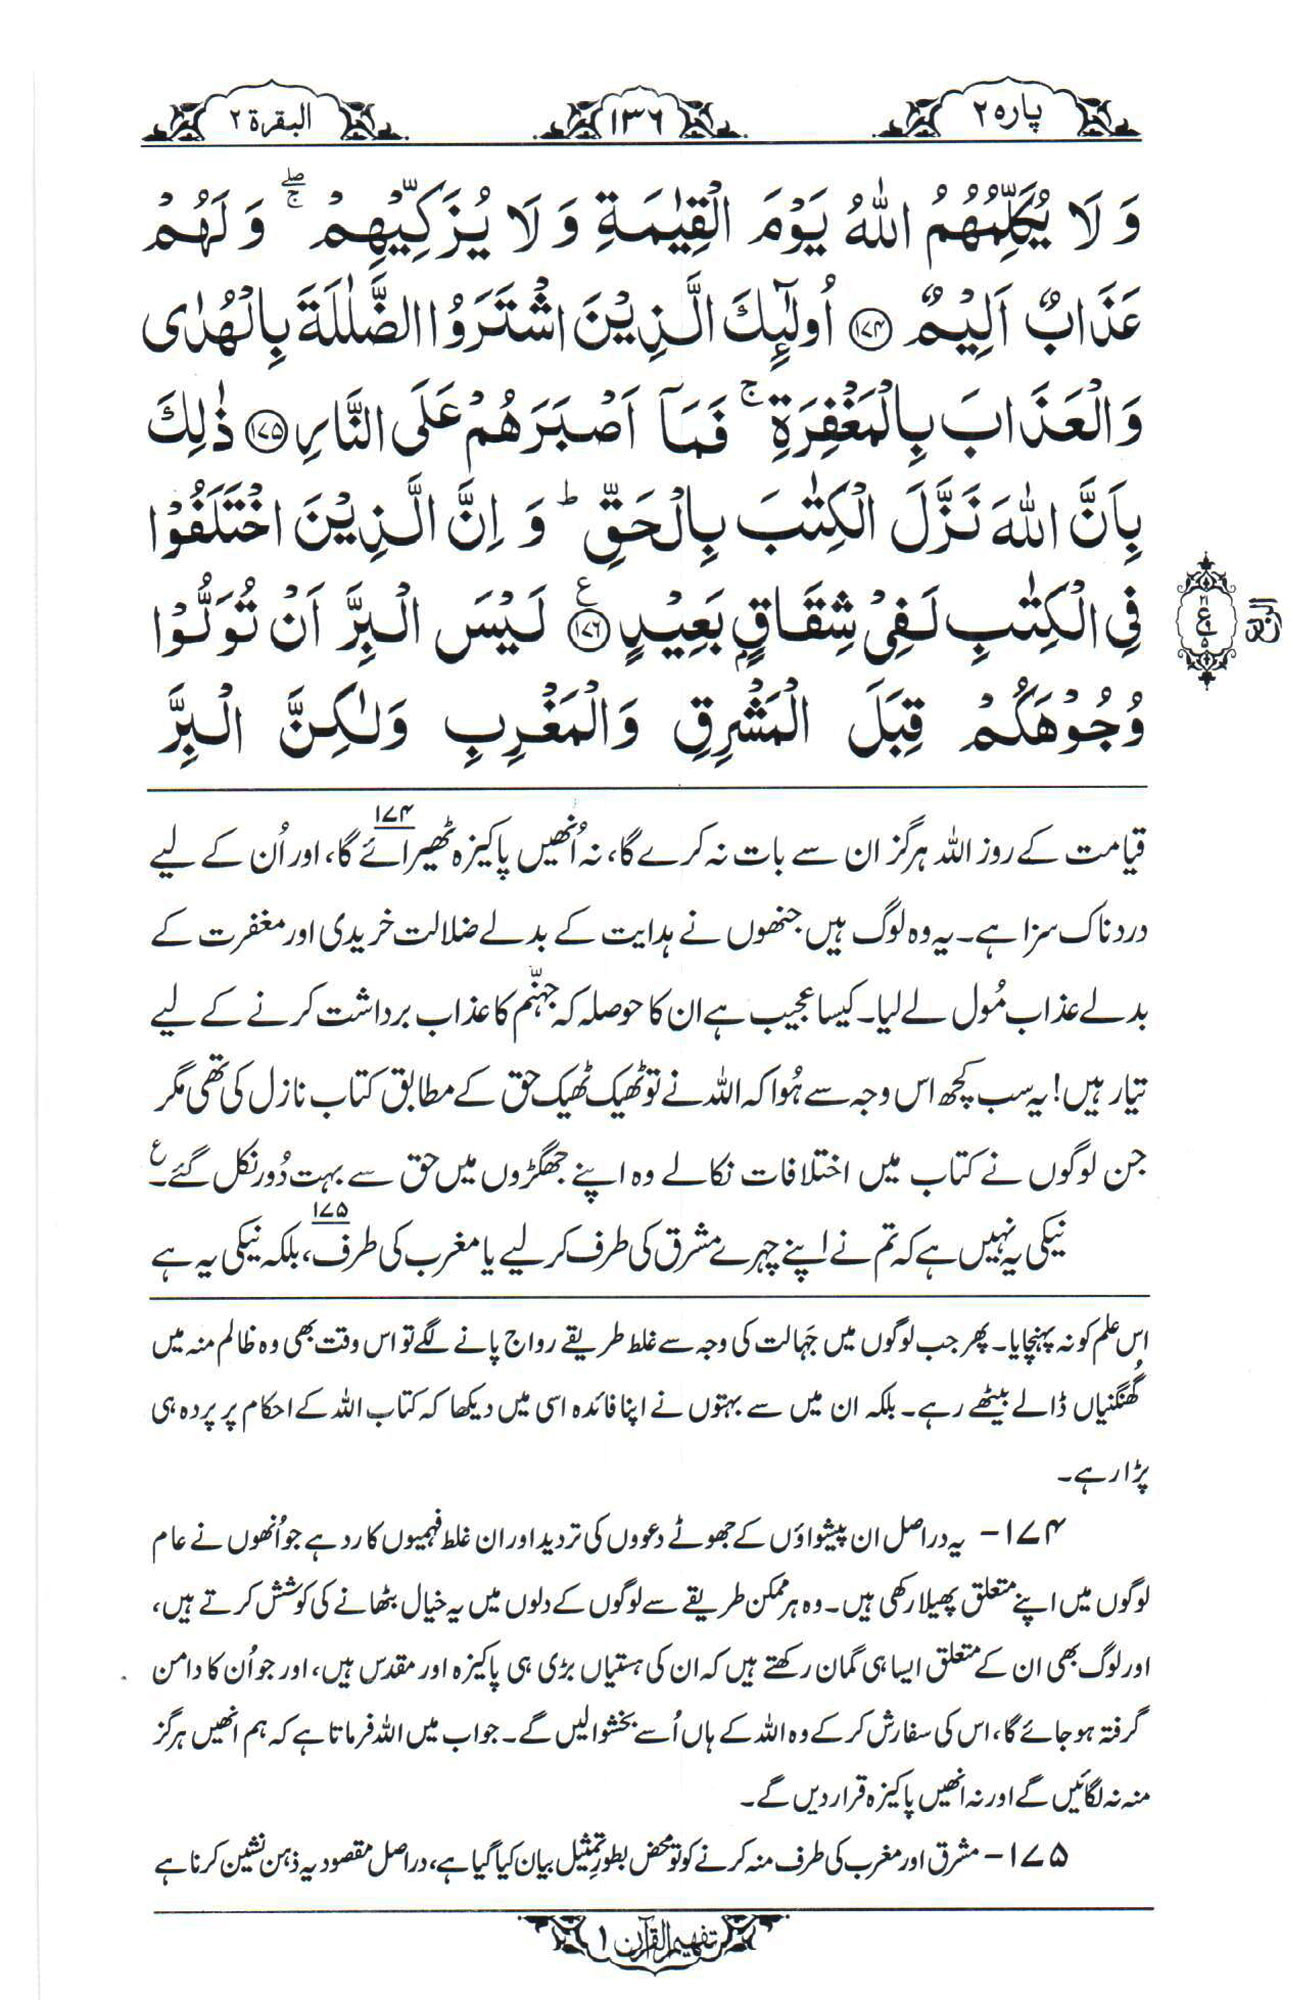 پارہ ۲
۱۳۶
البقرۃ ۲
وَ لَا يُكَلِّمُهُمُ اللّٰهُ يَوْمَ الْقِيٰمَةِ وَ لَا يُزَكِّيْهِمْ ۖۚ وَ لَهُمْ
عَذَابٌ اَلِيْمٌ ﴿۱۷۴﴾ اُولٰٓئِكَ الَّذِيْنَ اشْتَرَوُا الضَّلٰلَةَ بِالْهُدٰى
وَالْعَذَابَ بِالْمَغْفِرَةِ ۚ فَمَاۤ اَصْبَرَهُمْ عَلَى النَّارِ ﴿۱۷۵﴾ ذٰلِكَ
بِاَنَّ اللّٰهَ نَزَّلَ الْكِتٰبَ بِالْحَقِّ ؕ وَ اِنَّ الَّذِيْنَ اخْتَلَفُوْا
فِى الْكِتٰبِ لَفِىْ شِقَاقٍۭ بَعِيْدٍ ﴿۱۷۶﴾ ع لَيْسَ الْبِرَّ اَنْ تُوَلُّوْا
وُجُوْهَكُمْ قِبَلَ الْمَشْرِقِ وَالْمَغْرِبِ وَلٰكِنَّ الْبِرَّ
قیامت کے روز اللہ ہرگز ان سے بات نہ کرے گا، نہ اُنھیں پاکیزہ ٹھیرائے گا،۱۷۴ اور اُن کے لیے
دردناک سزا ہے۔ یہ وہ لوگ ہیں جنھوں نے ہدایت کے بدلے ضلالت خریدی اور مغفرت کے
بدلے عذاب مُول لے لیا۔ کیسا عجیب ہے ان کا حوصلہ کہ جہنّم کا عذاب برداشت کرنے کے لیے
تیار ہیں! یہ سب کچھ اس وجہ سے ہُوا کہ اللہ نے تو ٹھیک ٹھیک حق کے مطابق کتاب نازل کی تھی مگر
جن لوگوں نے کتاب میں اختلافات نکالے وہ اپنے جھگڑوں میں حق سے بہت دُور نکل گئے۔ ع
نیکی یہ نہیں ہے کہ تم نے اپنے چہرے مشرق کی طرف کر لیے یا مغرب کی طرف،۱۷۵ بلکہ نیکی یہ ہے
اس علم کو نہ پہنچایا۔ پھر جب لوگوں میں جَہالت کی وجہ سے غلط طریقے رواج پانے لگے تو اس وقت بھی وہ ظالم منہ میں
گھُنگنیاں ڈالے بیٹھے رہے۔ بلکہ ان میں سے بہتوں نے اپنا فائدہ اسی میں دیکھا کہ کتاب اللہ کے احکام پر پردہ ہی
پڑا رہے۔
۱۷۴- یہ دراصل ان پیشواؤں کے جھوٹے دعووں کی تردید اور ان غلط فہمیوں کا رد ہے جو اُنھوں نے عام
لوگوں میں اپنے متعلق پھیلا رکھی ہیں۔ وہ ہر ممکن طریقے سے لوگوں کے دلوں میں یہ خیال بٹھانے کی کوشش کرتے ہیں،
اور لوگ بھی ان کے متعلق ایسا ہی گمان رکھتے ہیں کہ ان کی ہستیاں بڑی ہی پاکیزہ اور مقدس ہیں، اور جو اُن کا دامن
گرفتہ ہو جائے گا، اس کی سفارش کر کے وہ اللہ کے ہاں اُسے بخشوا لیں گے۔ جواب میں اللہ فرماتا ہے کہ ہم انھیں ہرگز
منہ نہ لگائیں گے اور نہ انھیں پاکیزہ قرار دیں گے۔
۱۷۵- مشرق اور مغرب کی طرف منہ کرنے کو تو محض بطورِ تمثیل بیان کیا گیا ہے، دراصل مقصود یہ ذہن نشین کرنا ہے
تفہیم القرآن ۱